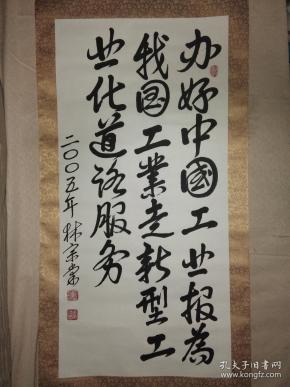 办好中國工业报為
我国工業走新型工
业化道路服务
二〇〇五年 林宗棠
孔夫子旧书网